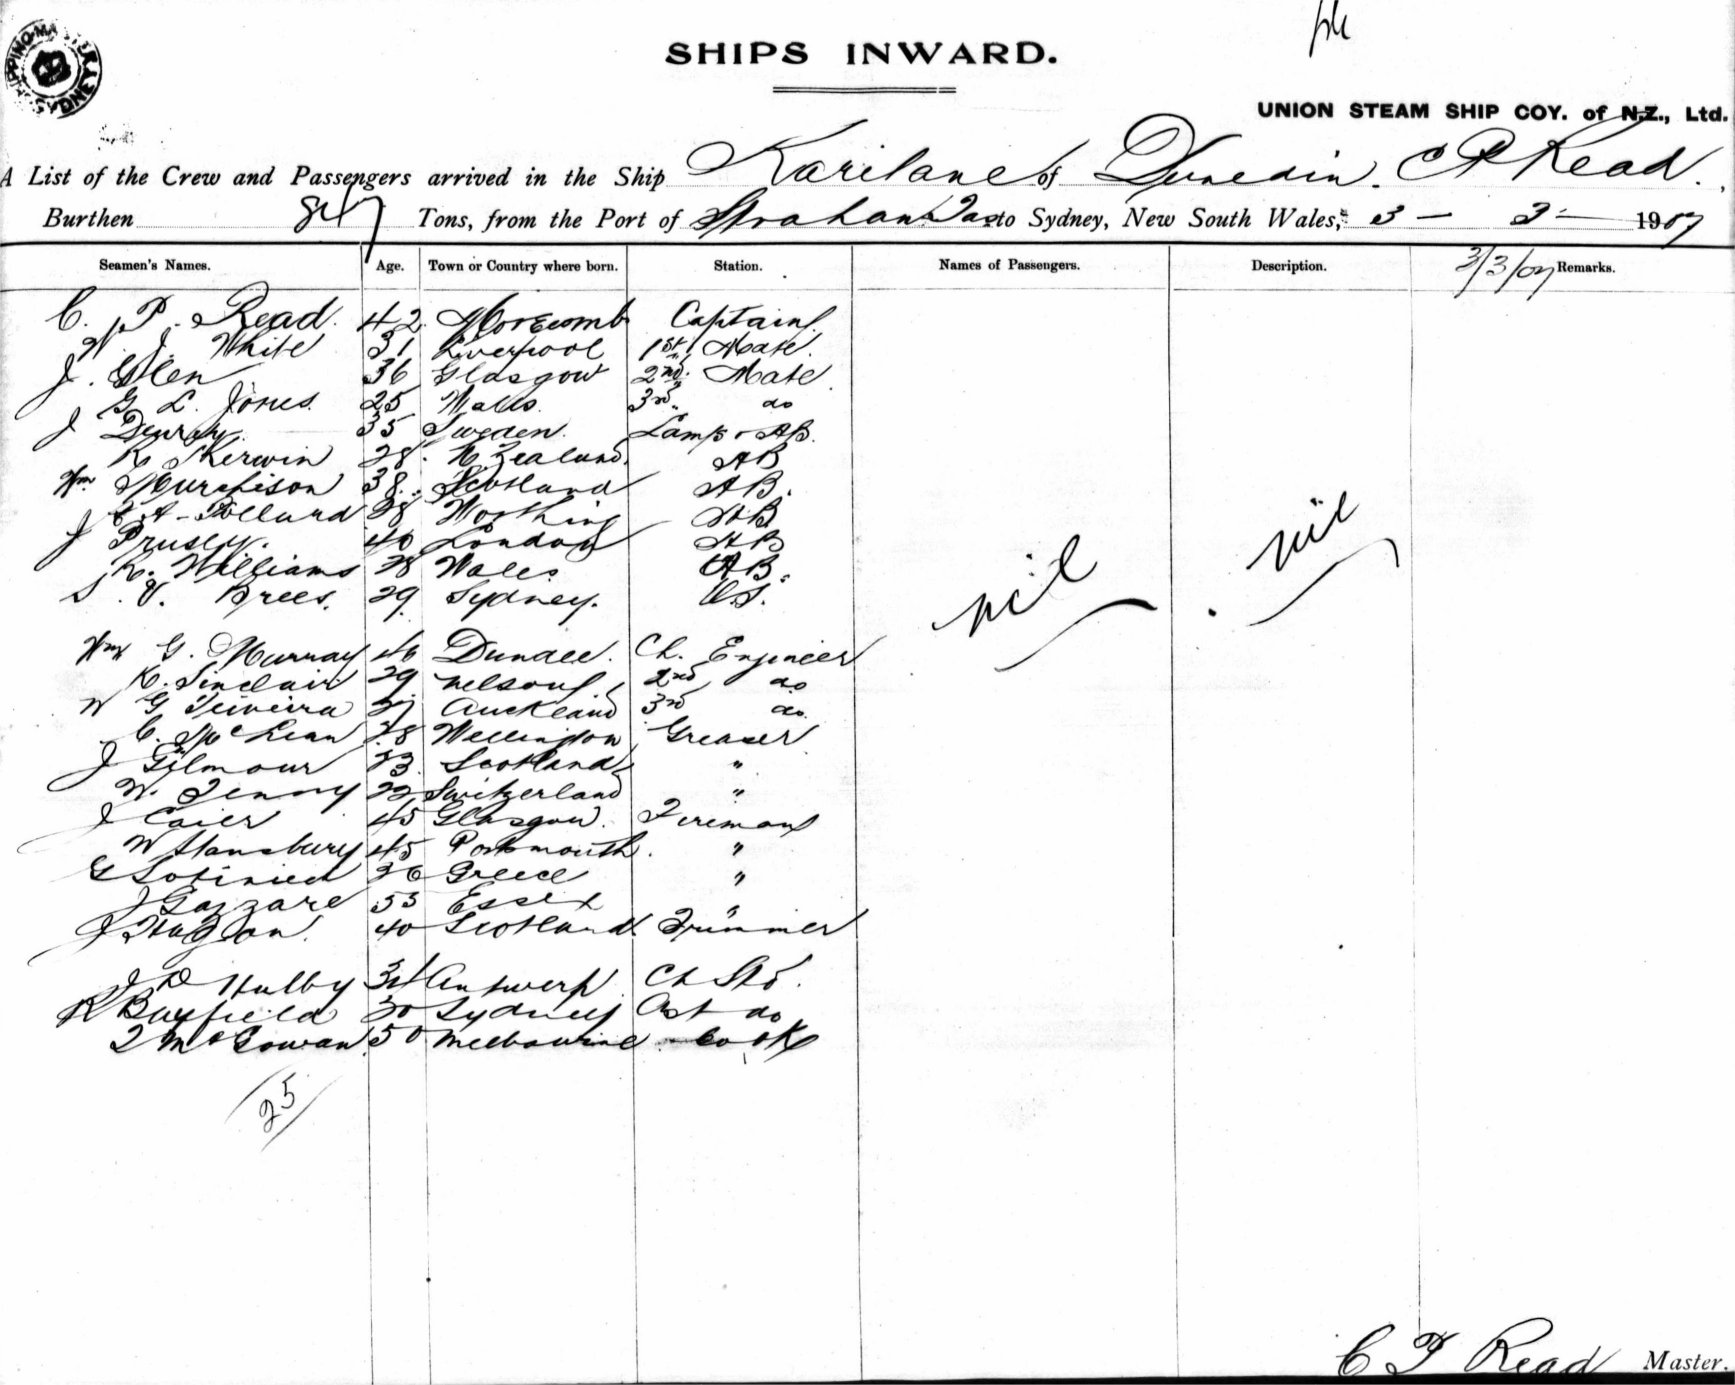 SHIPPING MASTER SYDNEY
SHIPS INWARD.
UNION STEAM SHIP COY. of N.Z., Ltd.
A List of the Crew and Passengers arrived in the Ship Karitane of Dunedin. C P Read.
Burthen Tons, from the Port of Strahan Tas to Sydney, New South Wales, 3 - 3 - 1907
Seamen's Names. Age. Town or Country where born. Station. Names of Passengers. Description. 3/3/07 Remarks.
C. P. Read. 42 Captain
W. J. White 31 Liverpool 1st Mate.
J. Glen 36 Glasgow 2nd Mate
G. L. Jones. 25 Wales. 3rd. do
J 35 Sweden. Lamps & AB.
K Kerwin 28. N. Zealand. AB
Wm Murchison 38. Scotland AB.
A. Pollard 28 Worthing AB
J 40 London AB
R. Williams 28 Wales AB.
S. V. Brees. 29 Sydney. O.S.
nil nil
Wm G. Murray 46 Dundee. Ch. Engineer
K. Sinclair 29 Nelson 2nd do
W G Teiveira Auckland 3rd do.
C. McLean 28 Wellington Greaser
J Gilmour 23 Scotland "
W. Jenny 22 Switzerland "
J Caier 45 Glasgow. Fireman
W Stansbury 45 Portsmouth. "
G 36 Greece "
J Gazzare 53 Essex "
J 40 Scotland Trimmer
J D Hulby Antwerp Ch Std.
R Bayfield 30 Sydney Ast do
McGowan 50 Melbourne Cook
25
C P Read Master.